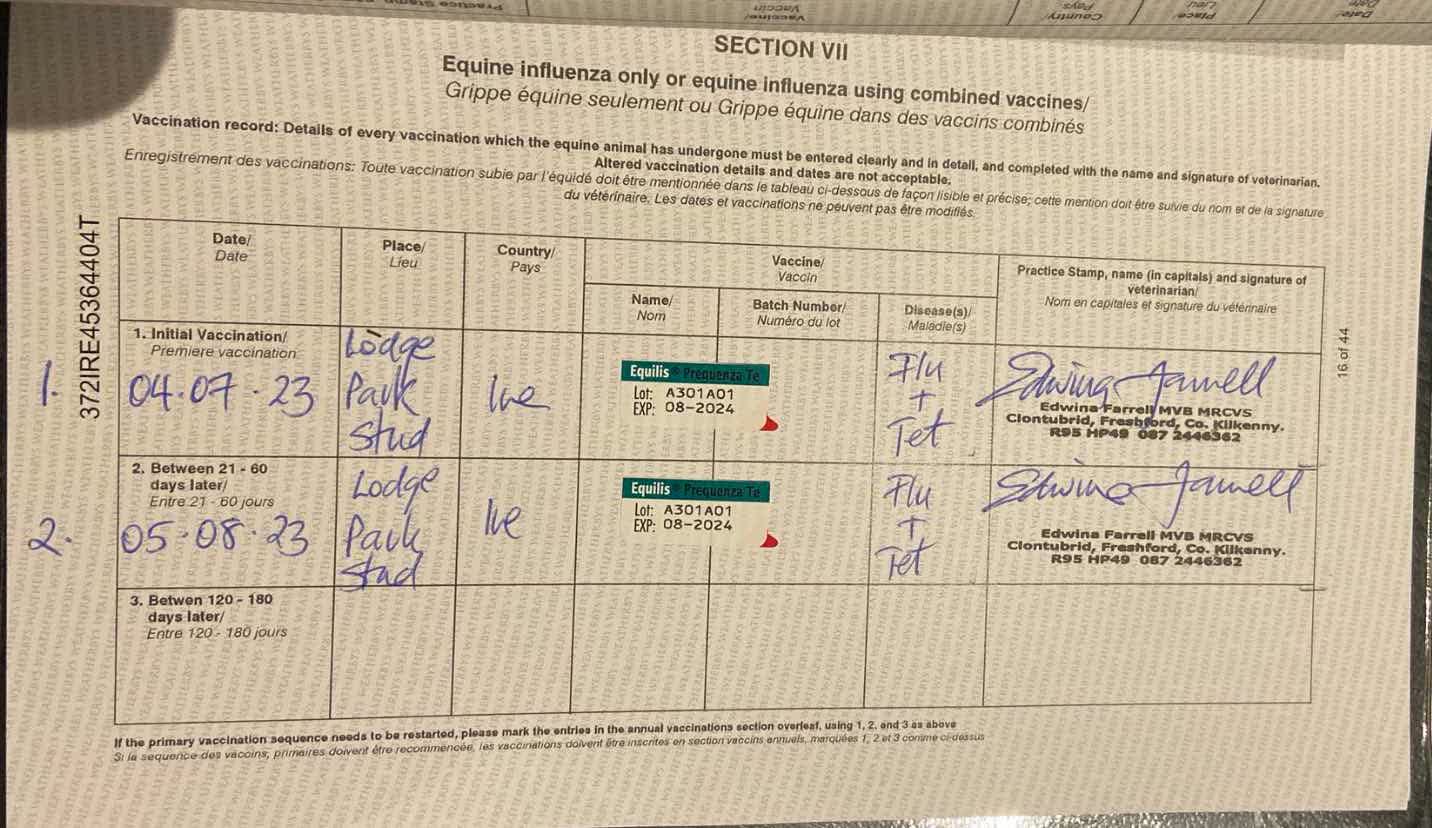 Practice Stamp
Vaccine/
Vaccin
Country/
Pays
Place/
Lieu
Date/
Date
SECTION VII
Equine influenza only or equine influenza using combined vaccines/
Grippe équine seulement ou Grippe équine dans des vaccins combinés
Vaccination record: Details of every vaccination which the equine animal has undergone must be entered clearly and in detail, and completed with the name and signature of veterinarian.
Altered vaccination details and dates are not acceptable.
Enregistrement des vaccinations: Toute vaccination subie par l'équidé doit être mentionnée dans le tableau ci-dessous de façon lisible et précise; cette mention doit être suivie du nom et de la signature
du vétérinaire. Les dates et vaccinations ne peuvent pas être modifiés.
372IRE45364404T
16 of 44
Date/
Date
Place/
Lieu
Country/
Pays
Vaccine/
Vaccin
Name/
Nom
Batch Number/
Numéro du lot
Disease(s)/
Maladie(s)
Practice Stamp, name (in capitals) and signature of
veterinarian/
Nom en capitales et signature du vétérinaire
1. Initial Vaccination/
Premiere vaccination
1.
04.07.23
Lodge
Park
Stud
Ire
Equilis® Prequenza Te
Lot: A301A01
EXP: 08-2024
Flu
+
Tet
Edwina Farrell
Edwina Farrell MVB MRCVS
Clontubrid, Freshford, Co. Kilkenny.
R95 HP49 087 2446362
2. Between 21 - 60
days later/
Entre 21 - 60 jours
2.
05.08.23
Lodge
Park
Stud
Ire
Equilis® Prequenza Te
Lot: A301A01
EXP: 08-2024
Flu
+
Tet
Edwina Farrell
Edwina Farrell MVB MRCVS
Clontubrid, Freshford, Co. Kilkenny.
R95 HP49 087 2446362
3. Betwen 120 - 180
days later/
Entre 120 - 180 jours
If the primary vaccination sequence needs to be restarted, please mark the entries in the annual vaccinations section overleaf, using 1, 2, and 3 as above
Si la sequence des vaccins, primaires doivent être recommencée, les vaccinations doivent être inscrites en section vaccins annuels, marquées 1, 2 et 3 comme ci-dessus